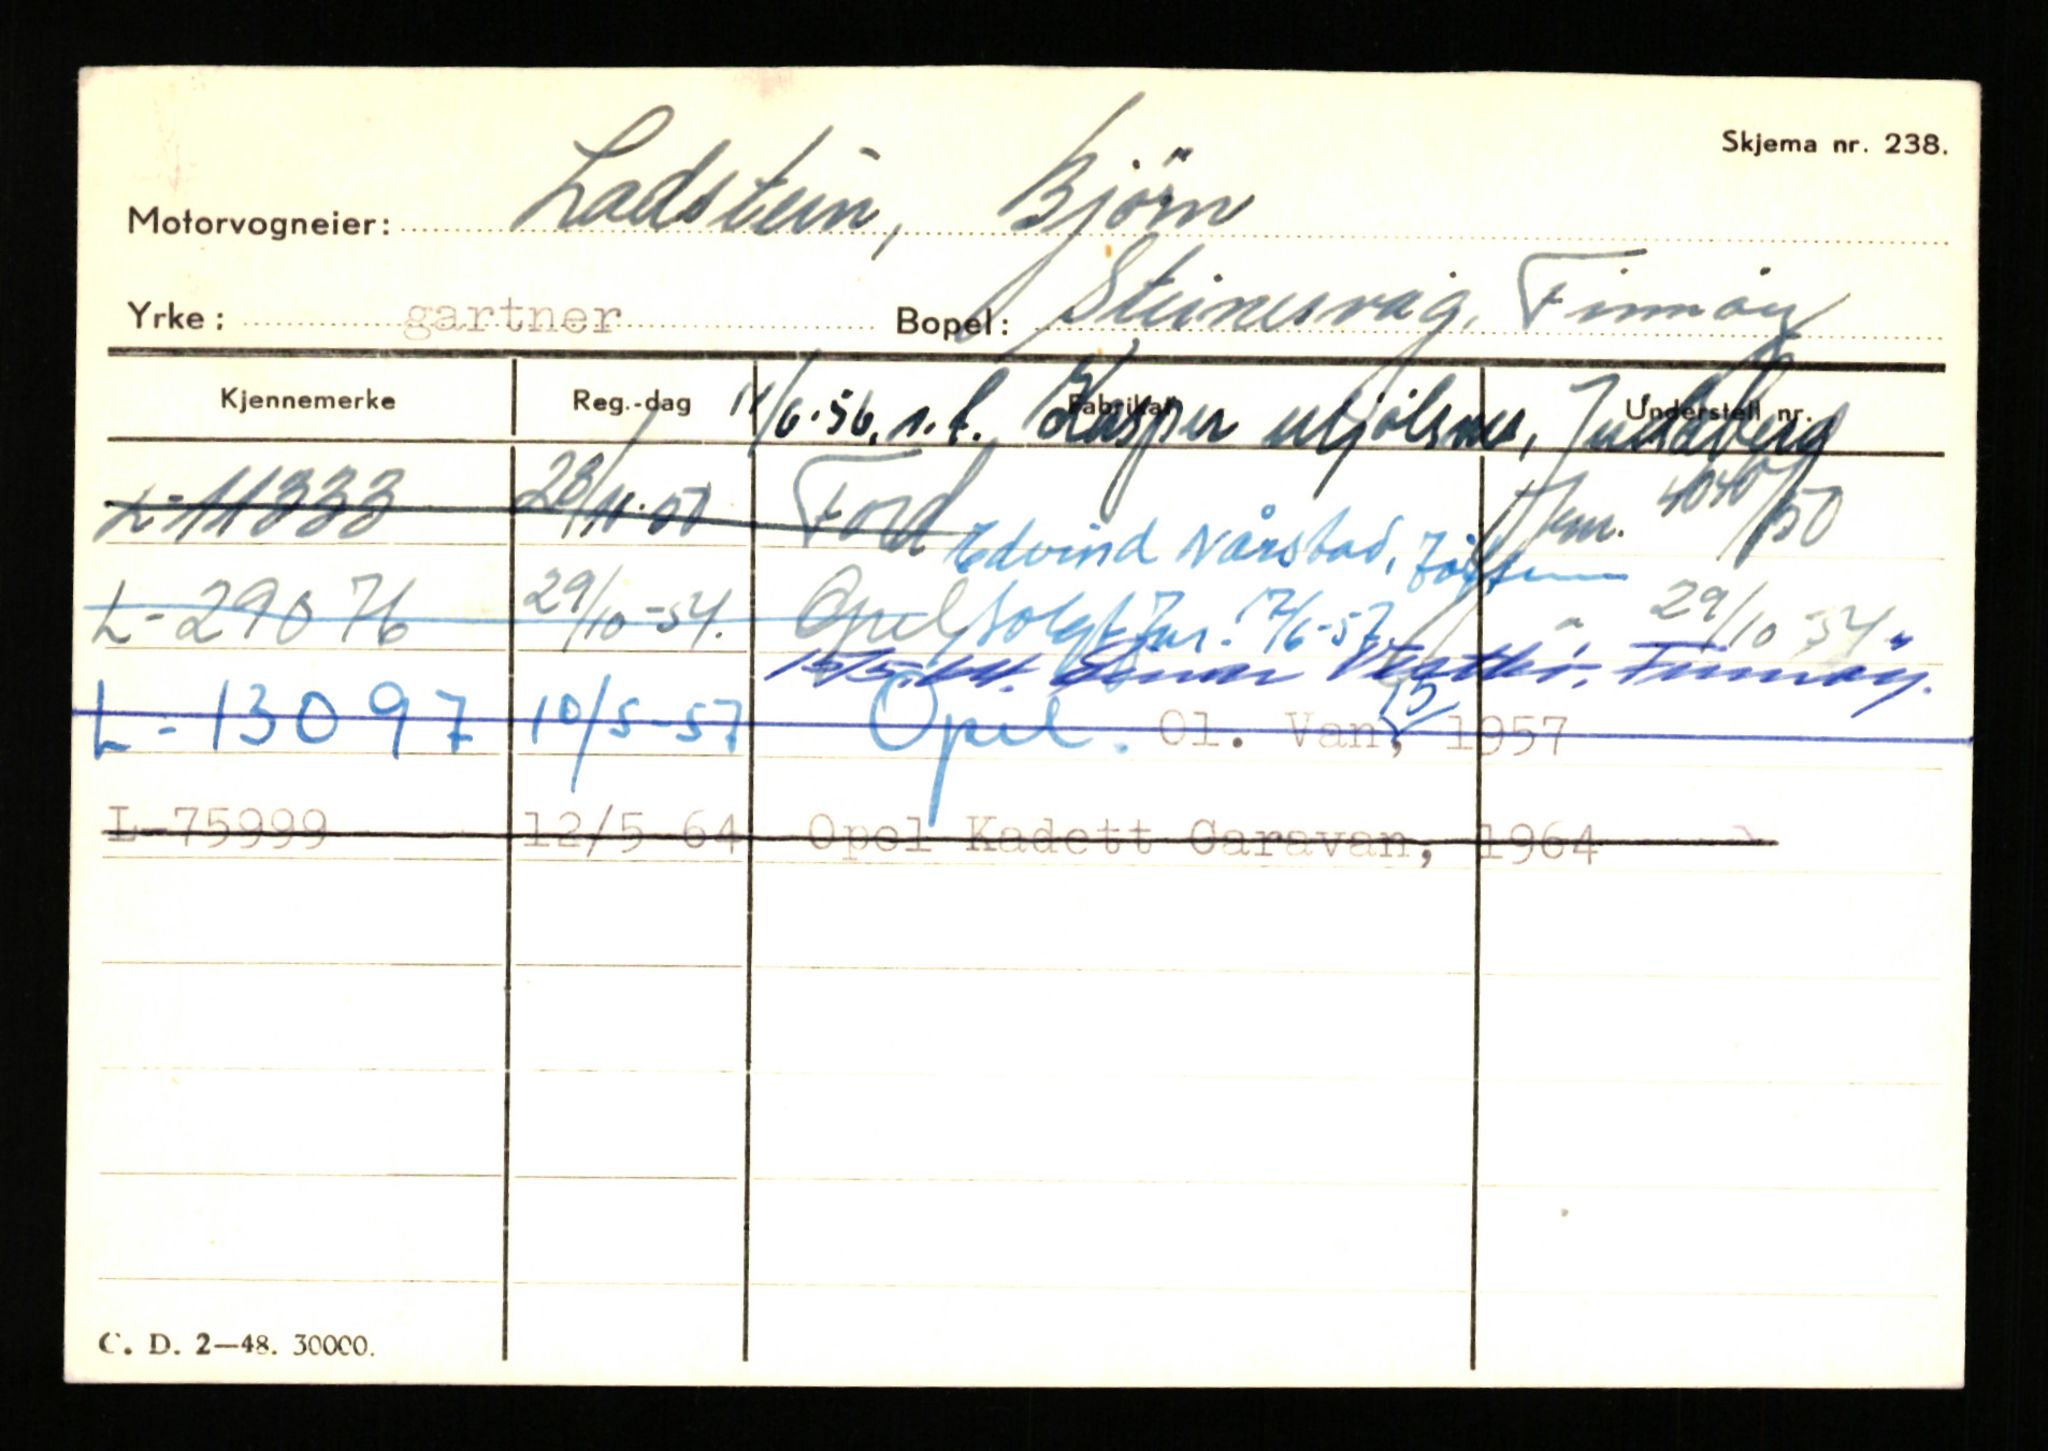 Skjema nr. 238.
Motorvogneier: Ladstein, Björn
Yrke: gartner Bopel: Steinesvåg, Finnöy
Kjennemerke Reg.-dag Fabrikat Understell nr.
11/6-56. n.f. Kasper Mjølsnes, Judaberg
L-11333 28/11-50 Ford Jun. 4040/50
Edvind Nårstad,
L-29076 29/10-54. Opel solgt Jar. 17/6-57 " 29/10-54"
15/5.64. Vestbö, Finnöy.
L-13097 10/5-57 Opel. Ol. Van, 1957
L-75999 12/5-64 Opel Kadett Caravan, 1964
C. D. 2—48. 30000.